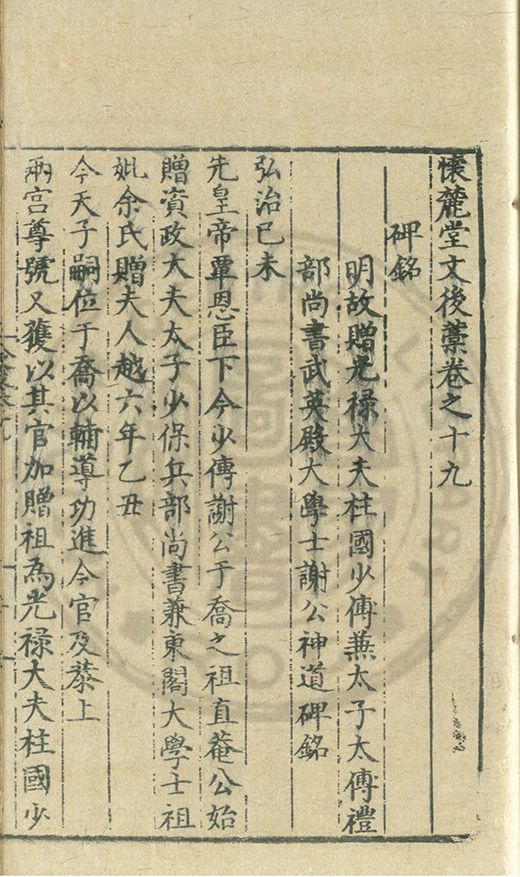 懷麓堂文後藁卷之十九
碑銘
明故贈光祿大夫柱國少傅兼太子太傅禮
部尚書武英殿大學士謝公神道碑銘
弘治己未
先皇帝覃恩臣下今少傅謝公于喬之祖直菴公始
贈資政大夫太子少保兵部尚書兼東閣大學士祖
妣余氏贈夫人越六年乙丑
今天子嗣位于喬以輔導功進今官及恭上
兩宮尊號又獲以其官加贈祖為光祿大夫柱國少